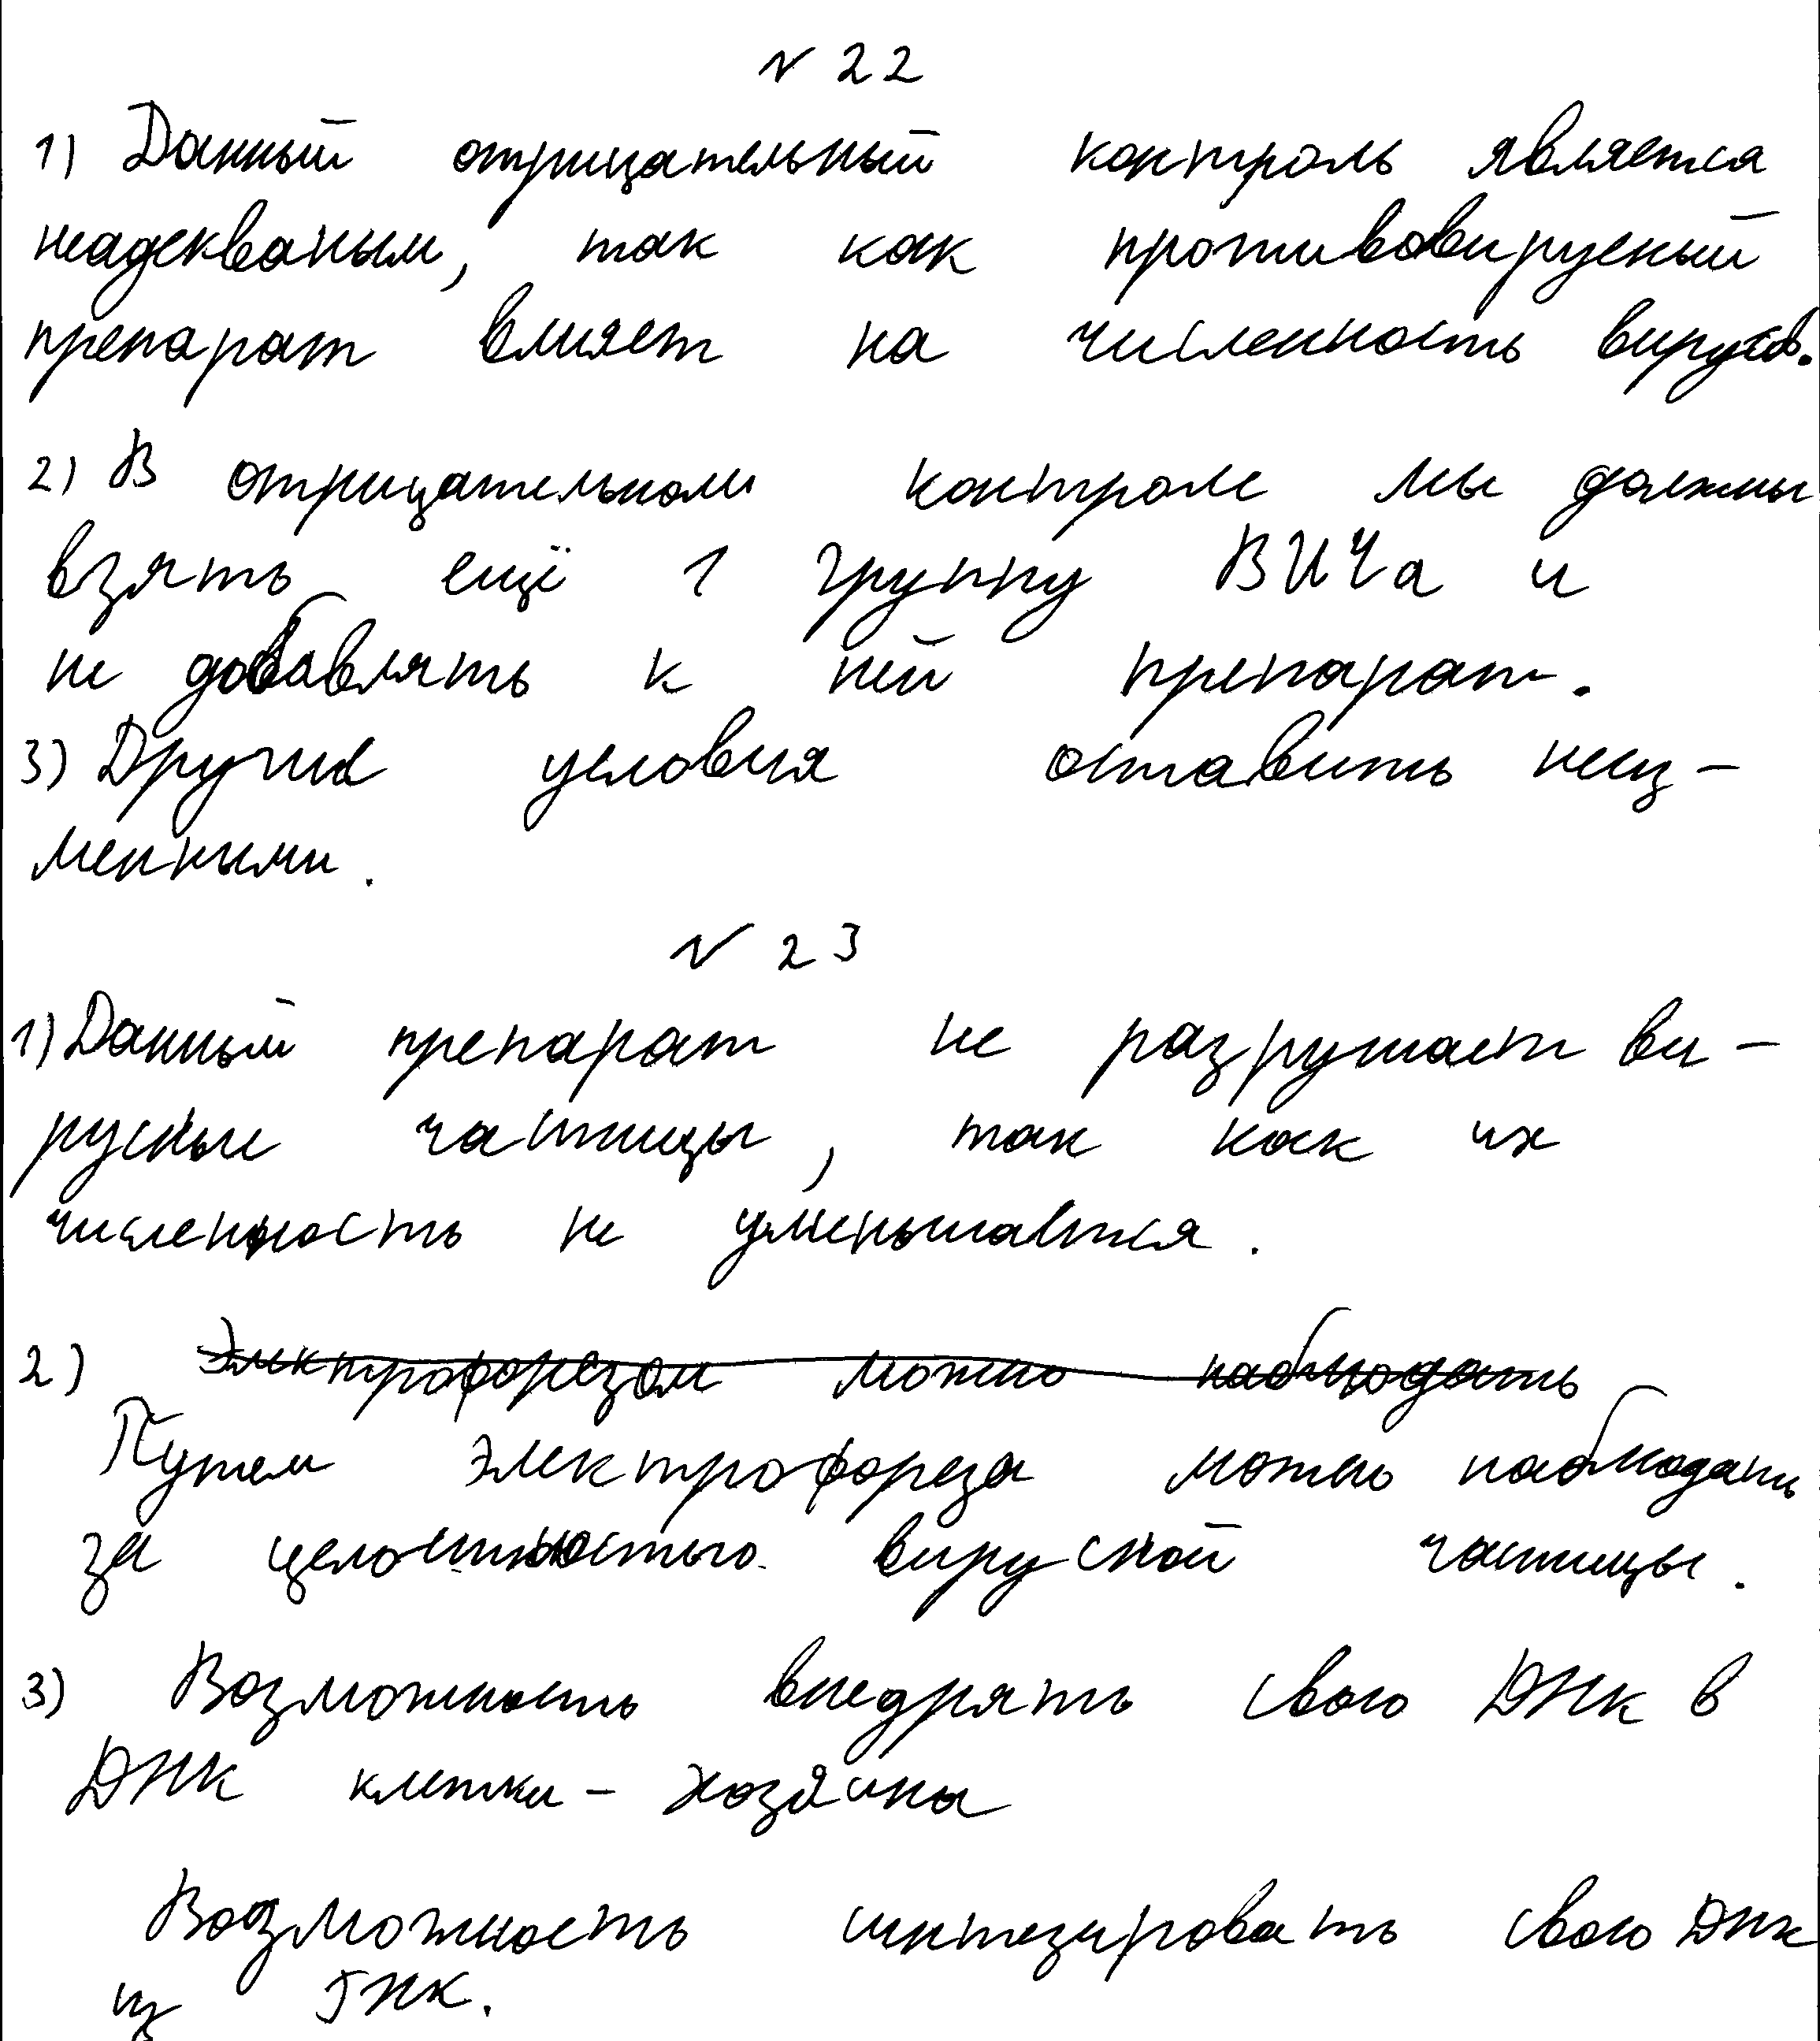 № 22
1) Данный отрицательный контроль является
неадекваным, так как противовирусный
препарат влияет на численность вирусов.
2) В отрицательном контроле мы должны
взять ещё 1 группу ВИЧа и
не добавлять к ней препарат.
3) Другие условия оставить неиз-
менными.
№ 23
1) Данный препарат не разрушает ви-
русные частицы, так как их
численность не уменьшается.
2) Электрофорезом можно наблюдать
Путем электрофореза можно наблюдать
за целостностью вирусной частицы.
3) Возможность внедрять свою ДНК в
ДНК клетки-хозяина
Возможность синтезировать свою ДНК
из РНК.